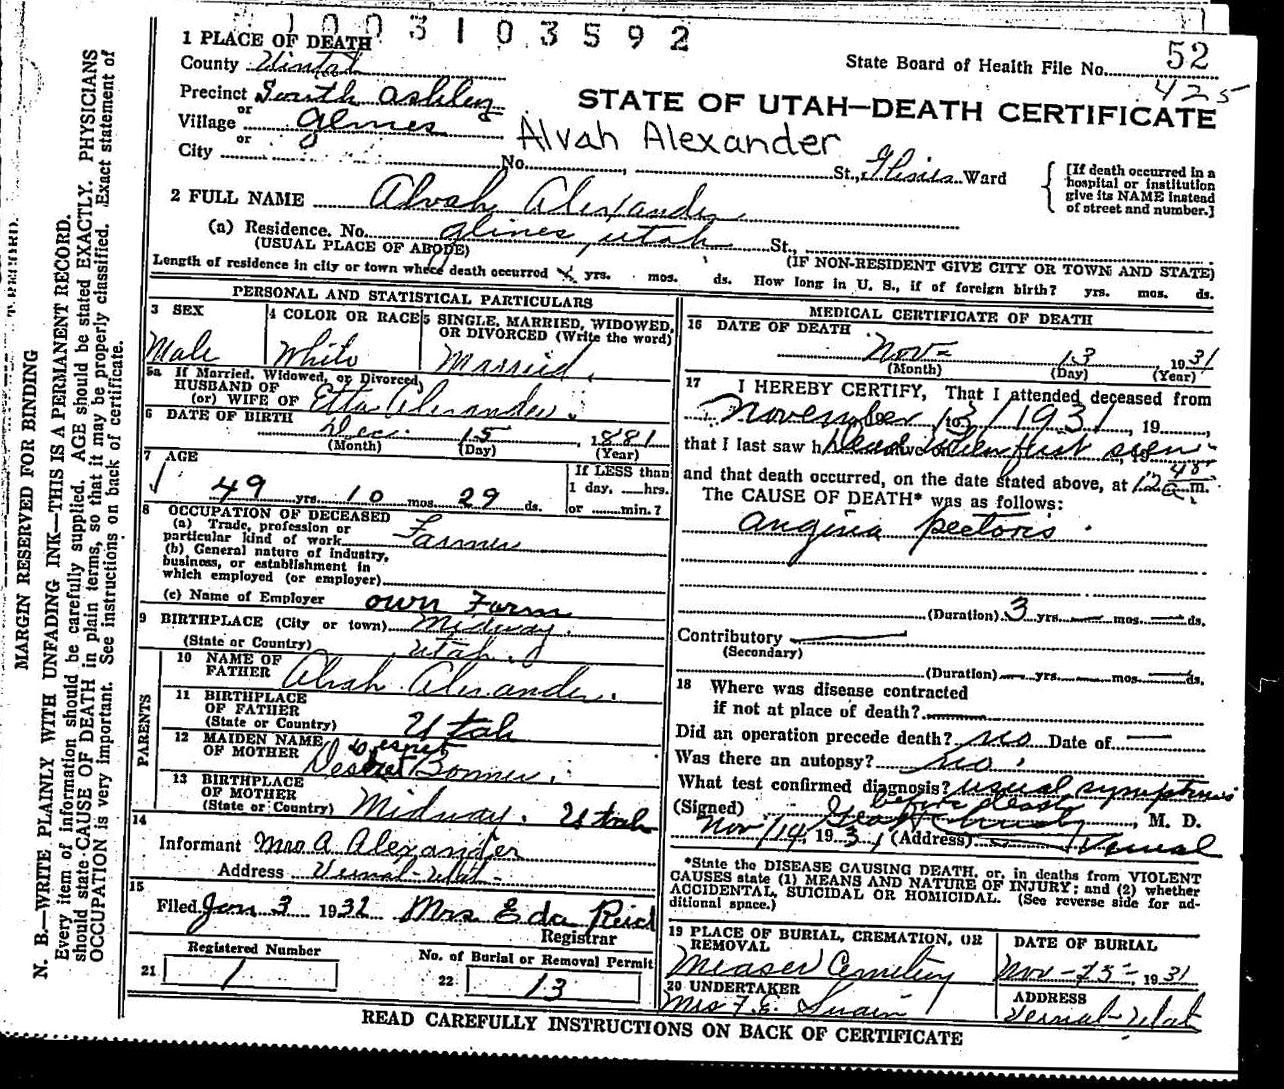 1003103592
1 PLACE OF DEATH
County Uintah
State Board of Health File No. 52
425
Precinct South Ashley
or
Village Glines
STATE OF UTAH—DEATH CERTIFICATE
or
Alvah Alexander
City No. St., Glines Ward
[If death occurred in a
hospital or institution
give its NAME instead
of street and number.]
2 FULL NAME Alvah Alexander
(a) Residence. No. Glines, Utah St.,
(USUAL PLACE OF ABODE)
(IF NON-RESIDENT GIVE CITY OR TOWN AND STATE)
Length of residence in city or town where death occurred yrs. mos. ds. How long in U. S., if of foreign birth? yrs. mos. ds.
PERSONAL AND STATISTICAL PARTICULARS
3 SEX
Male
4 COLOR OR RACE
White
5 SINGLE, MARRIED, WIDOWED,
OR DIVORCED (Write the word)
Married.
5a If Married, Widowed, or Divorced,
HUSBAND OF
(or) WIFE OF Etta Alexander.
6 DATE OF BIRTH
Dec. 15, 1881
(Month) (Day) (Year)
7 AGE
49 yrs. 10 mos. 29 ds.
If LESS than
1 day, hrs.
or min.?
8 OCCUPATION OF DECEASED
(a) Trade, profession or
particular kind of work Farmer
(b) General nature of industry,
business, or establishment in
which employed (or employer)
(c) Name of Employer own Farm
9 BIRTHPLACE (City or town) Midway.
(State or Country) Utah.
PARENTS
10 NAME OF
FATHER Alvah Alexander.
11 BIRTHPLACE
OF FATHER
(State or Country) Utah
12 MAIDEN NAME
OF MOTHER Deseret Bonner.
13 BIRTHPLACE
OF MOTHER
(State or Country) Midway. Utah
14
Informant Mrs A Alexander
Address Vernal-Utah-
15
Filed Jan 3 1932 Mrs Eda Reid
Registrar
Registered Number
21 1
No. of Burial or Removal Permit
22 13
MEDICAL CERTIFICATE OF DEATH
16 DATE OF DEATH
Nov- 13 1931
(Month) (Day) (Year)
17 I HEREBY CERTIFY, That I attended deceased from
November 13/1931, 19
that I last saw h Dead when first seen
and that death occurred, on the date stated above, at 12 45 a m.
The CAUSE OF DEATH* was as follows:
Angina Pectoris.
(Duration) 3 yrs. mos. ds.
Contributory
(Secondary)
(Duration) yrs. mos. ds.
18 Where was disease contracted
if not at place of death?
Did an operation precede death? no Date of
Was there an autopsy? no.
What test confirmed diagnosis? usual symptoms
before death
(Signed) , M. D.
Nov/14, 1931 (Address) Vernal
*State the DISEASE CAUSING DEATH, or, in deaths from VIOLENT
CAUSES state (1) MEANS AND NATURE OF INJURY; and (2) whether
ACCIDENTAL, SUICIDAL OR HOMICIDAL. (See reverse side for ad-
ditional space.)
19 PLACE OF BURIAL, CREMATION, OR
REMOVAL
Measer Cemetery
DATE OF BURIAL
Nov-15-1931
20 UNDERTAKER
Mrs F. E. Swain
ADDRESS
Vernal-Utah
READ CAREFULLY INSTRUCTIONS ON BACK OF CERTIFICATE
MARGIN RESERVED FOR BINDING
N. B.—WRITE PLAINLY WITH UNFADING INK—THIS IS A PERMANENT RECORD.
Every item of information should be carefully supplied. AGE should be stated EXACTLY. PHYSICIANS
should state CAUSE OF DEATH in plain terms, so that it may be properly classified. Exact statement of
OCCUPATION is very important. See instructions on back of certificate.